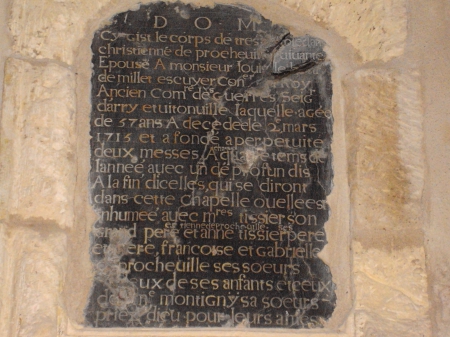 D O M
Cy gist le corps de tres
christienne de procheuil
Epouse A monsieur loui
de miller escuyer Con.er Roy
Ancien Com.re des guerres Seig
darry et vitonuille laquelle agee
de 57 ans A decedee le 2 mars
1715 et a fondé a perpetuite
deux messes A quatre tems de
lannee avec un de profundis
A la fin dicelles, qui se diront
dans cette chapelle ou elle est
inhumee avec mres tissier son
grand pere et anne tissier pere
et mere, francoise et Gabrielle
procheuille ses soeurs
deux de ses anfants et ceux
de montigny sa soeur
priez dieu pour leurs ames